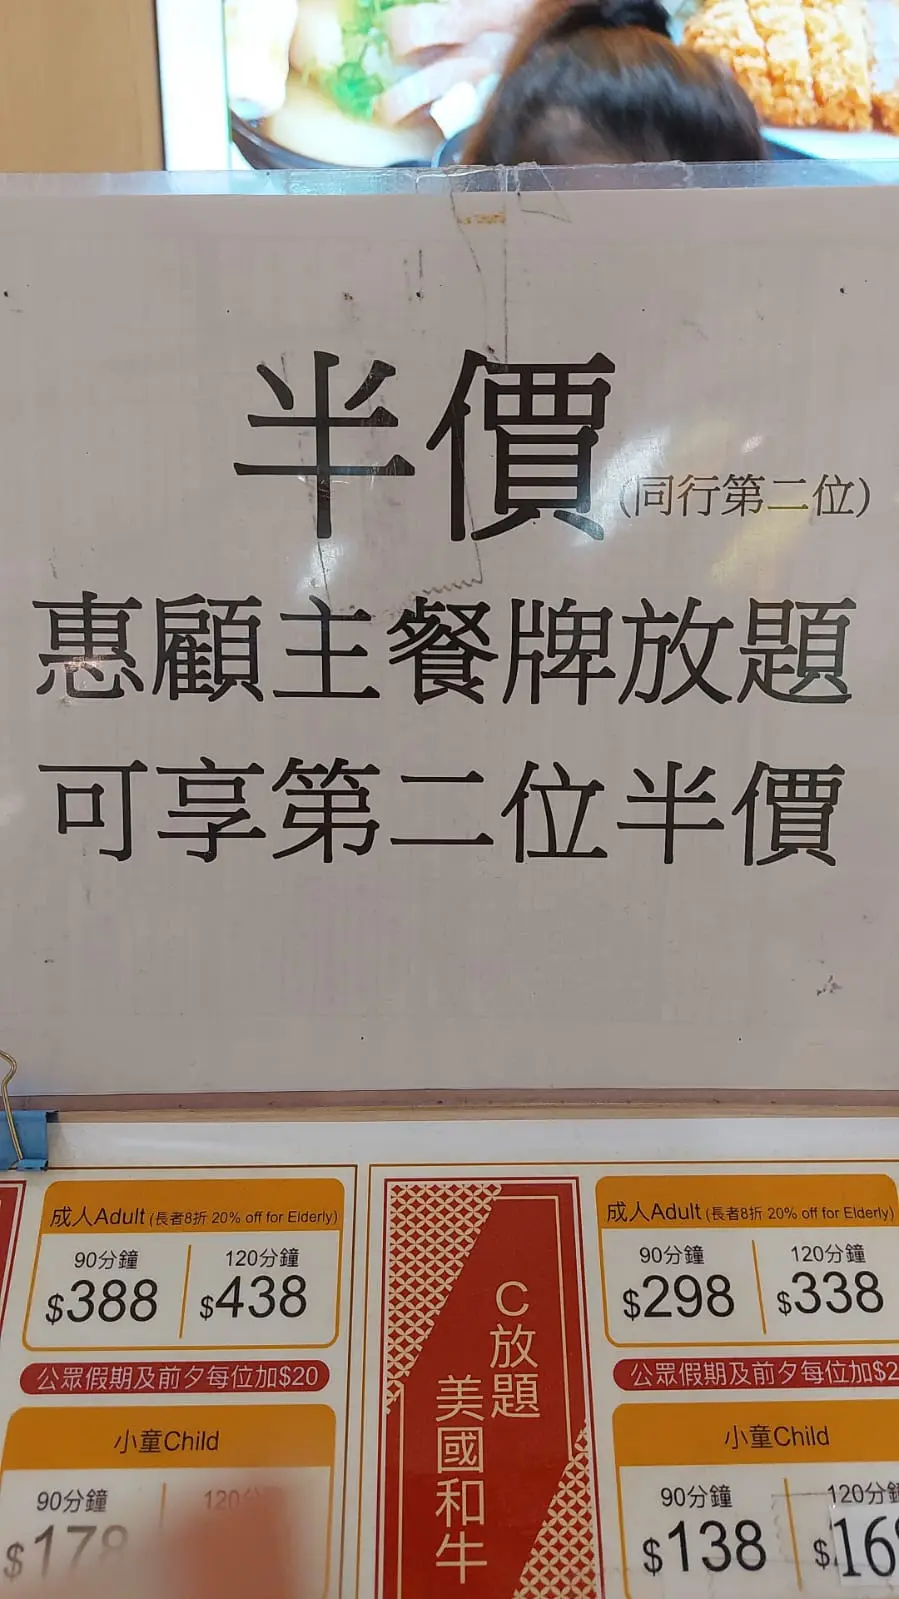 半價(同行第二位)
惠顧主餐牌放題
可享第二位半價
成人Adult (長者8折 20% off for Elderly)
90分鐘
$388
120分鐘
$438
公眾假期及前夕每位加$20
小童Child
90分鐘
$178
C放題
美國和牛
成人Adult (長者8折 20% off for Elderly)
90分鐘
$298
120分鐘
$338
公眾假期及前夕每位加$2
小童Child
90分鐘
$138
120分鐘
$16